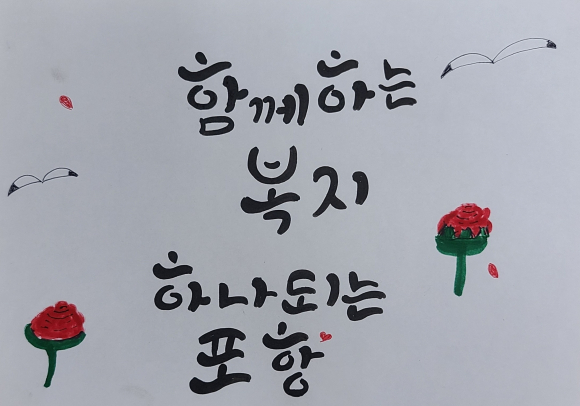 함께하는
복지
하나되는
포항